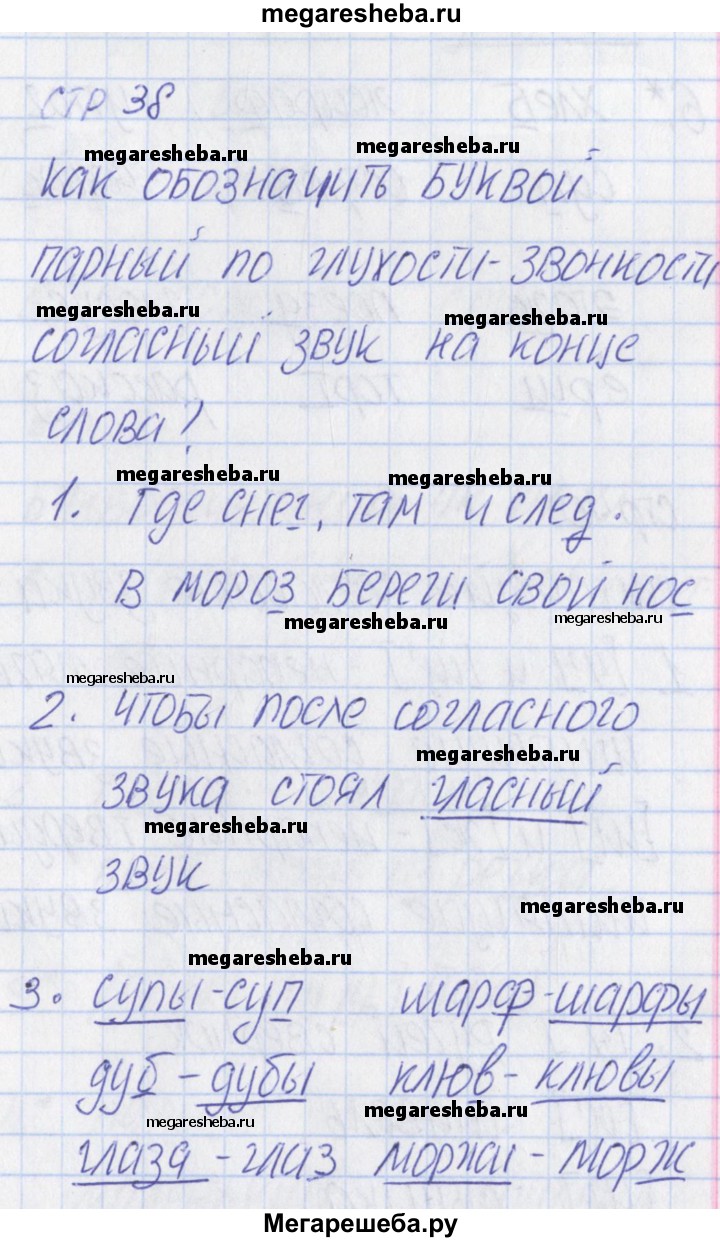 megaresheba.ru
стр 38
megaresheba.ru
megaresheba.ru
Как обозначить буквой
парный по глухости-звонкости
megaresheba.ru
megaresheba.ru
согласный звук на конце
слова?
megaresheba.ru
megaresheba.ru
1. Где снег, там и след.
В мороз береги свой нос
megaresheba.ru
megaresheba.ru
megaresheba.ru
2. Чтобы после согласного
megaresheba.ru
звука стоял гласный
megaresheba.ru
звук
megaresheba.ru
megaresheba.ru
3. супы-суп шарф-шарфы
дуб-дубы клюв-клювы
megaresheba.ru
megaresheba.ru
глаза-глаз моржи-морж
Мегарешеба.ру